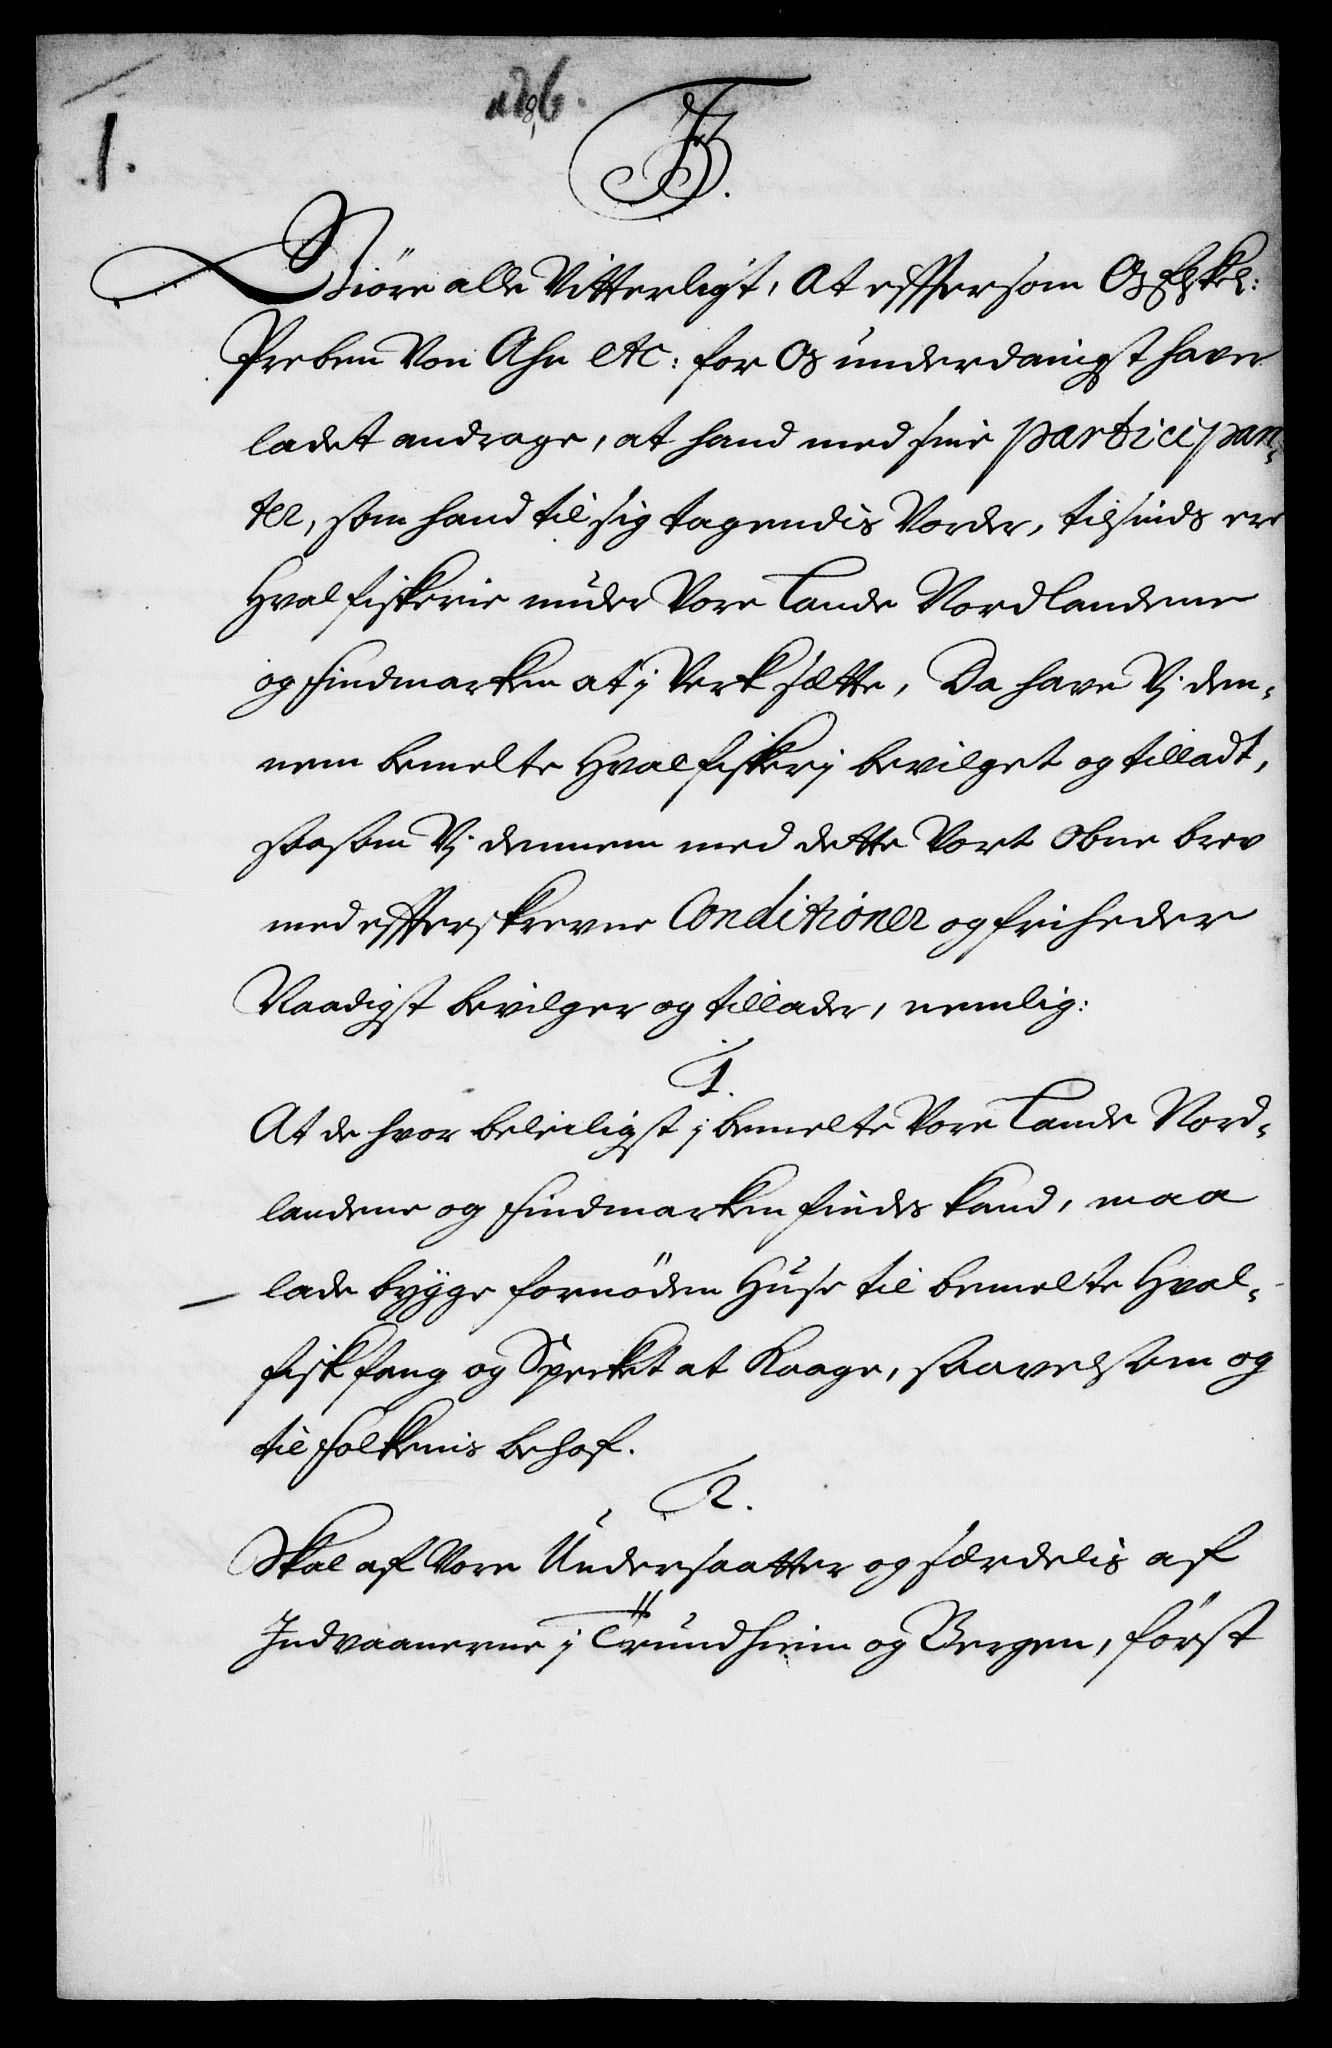 1.
B.
Giöre alle Vitterligt, At effttersom Os Elskel:
Preben Von Ahn etc: for Os underdanigst haver
ladet andrage, at hand med sine participan-
ter, som hand til sig tagendis Vorder, tilsinds ere
Hvalfiskerie under Vore Lande Nordlandene
og Findmarken at j Verk sette, Da have Vj den-
nem bemelte Hvalfiskerj bevilget og tilladt,
saasom Vj dennem med dette Vort Obne brev
med effterskrevne Conditioner og friheder
Naadigst bevilger og tillader, nemlig:
1.
At de hvor beleiligst j bemelte Vore Lande Nord-
landene og Findmarken findes kand, maa
lade bygge fornöden Huse til bemelte Hval-
fiskfang og Specket at Kaage, saavelsom og
til Folkenis behof.
2.
Skal af Vore Undersaatter og særdelis af
Indvaanerne j Trundhiem og Bergen, först